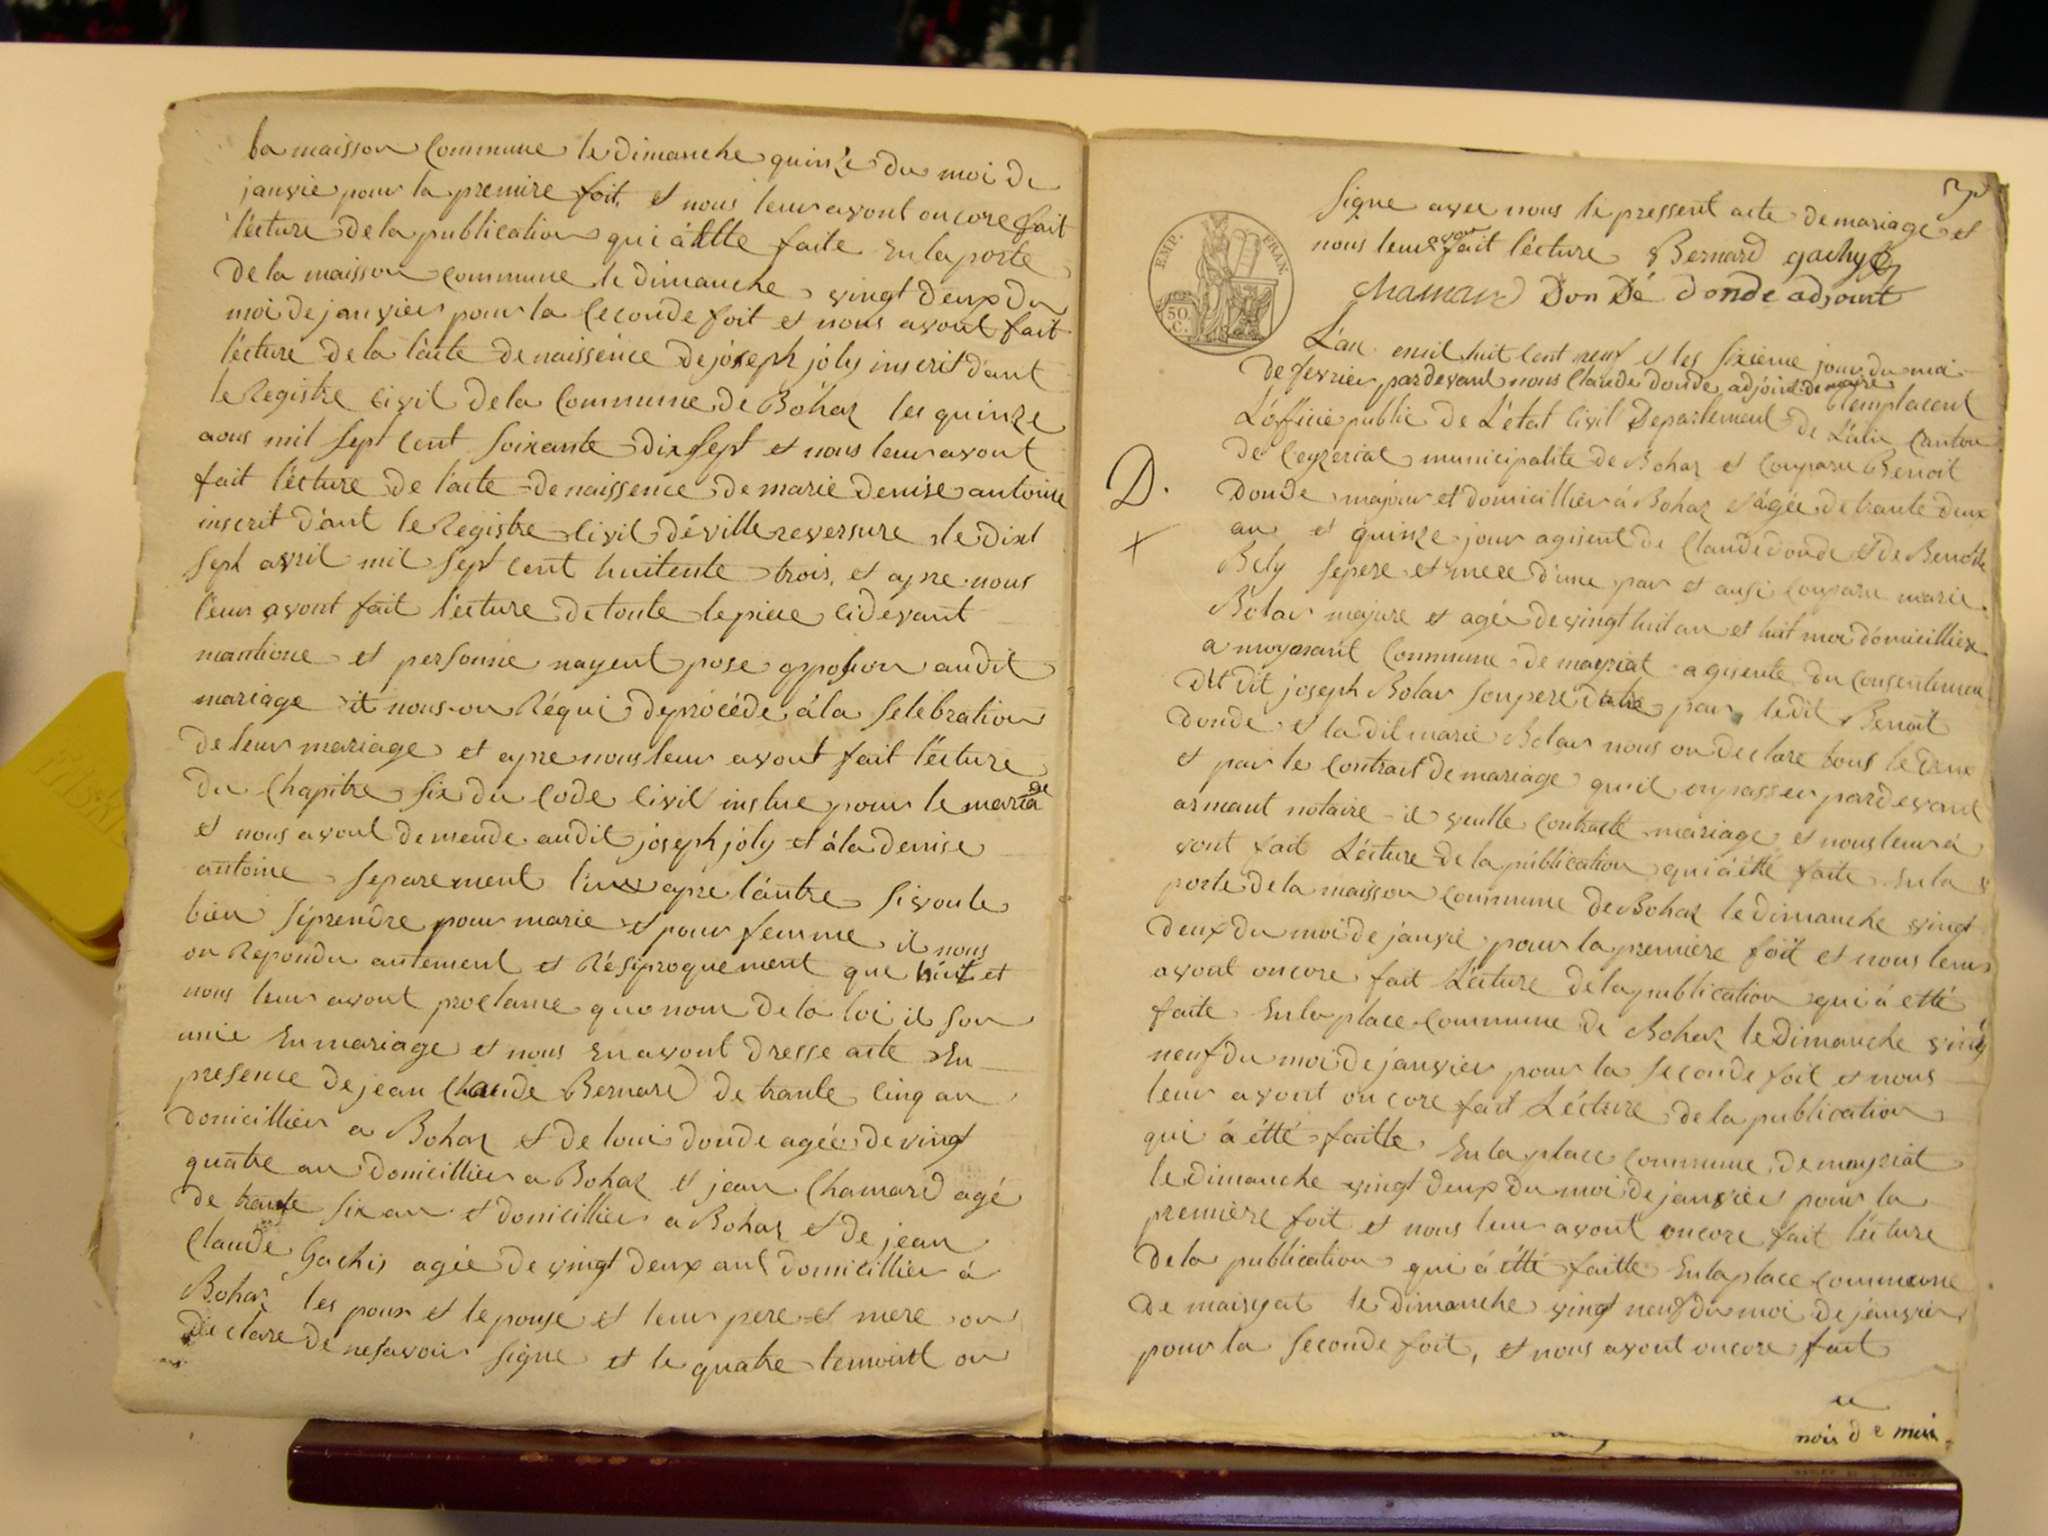 la maisson commune le dimanche quinze du moi de
janvié pour la premire foit, et nous leur avont oncore fait
lécture de la publication qui à ette faite en la porte
de la maisson commune le dimanche vingt deux du
moi de janvier pour la seconde foit et nous avont fait
lécture de la lacte de naissence de joseph joly inscrit dant
le Registre civil de la commune de Bohaz les quinze
aous mil sept cent soixante dix sept et nous leur avont
fait lécture de lacte de naissence de marie denise antoine
inscrit dant le Registre civil dé ville reversure le dixt
sept avril mil sept cent huitente trois, et apre nous
leur avont fait lécture de toute le piece ci devant
mantione et personne nayent pose oppossion audit
mariage it nous on Réqui de procéde à la selébration
de leur mariage et apre nous leur avont fait lécture
du chapitre six du code civil inslue pour le mariage
et nous avont demende audit joseph joly et à la denise
antoine separement l'un apre lautre si voule
bien séprendre pour marie et pour femme il nous
on Repondu autement et Résiproquement que huit et
nous leur avont proclame quo nom de la loi il son
unie en mariage et nous en avont dresse acte en
presence de jean claude Bernard de trante cinq an
domicillier a Bohaz et de loui donde agée de vingt
quatre an domicillier a Bohaz et jean Chamard agé
de trante six an et domicillier a Bohaz et de jean
claude Gachis agée de vingt deux ant domicillier à
Bohaz les pour et lepouse et leur pere et mere on
declare de ne savoir signe et le quatre temoint on
signe avec nous le pressent acte de mariage et
nous leur avon fait lécture Bernard gachy
chamard Don Dé donde adjoint
EMP. FRAN.
50 C.
L'an mil huit cent neuf et les sixieme jour du moi
de fevrier pardevant nous Claude donde adjoint de maire
Remplacent
L'officié public de L'état civil Departement de L'ain canton
de Ceyzeriat municipalite de Bohaz et conparu Benoit
D.
donde majeur et domicillier à Bohaz et agée de trante deux
an et quinze jour agisent de Claude donde et de Benoite
+
Bely se pere et mere d'une par et ausi conparu marie
Bolar majure et agée de vingt huit an et huit moi domicilliere
a moynant commune de mayriat agisente du consentement
dut dit joseph Bolar son pere dautre par ledit Benoit
donde et la dit marie Bolar nous on declare tous le deux
et par le contract de mariage quil on passer pardevant
armant notaire il veulle contracté mariage et nous leur à
vont fait Lécture de la publication qui à été faite en la
porte de la maisson commune de Bohaz le dimanche vingt
deux du moi de janvié pour la première foit et nous leur
avont oncore fait Lécture de la publication qui à etté
faite en la place commune de Bohaz le dimanche vingt
neuf du moi de janvier pour la seconde foit et nous
leur avont oncore fait Lécture de la publication
qui à été faitte en la place commune de mayriat
le dimanche vingt deux du moi de janvier pour la
première foit et nous leur avont oncore fait lécture
de la publication qui à été faitte en la place commune
de maiseyat le dimanche vingt neuf du moi de janvier
pour la seconde foit, et nous avont oncore fait